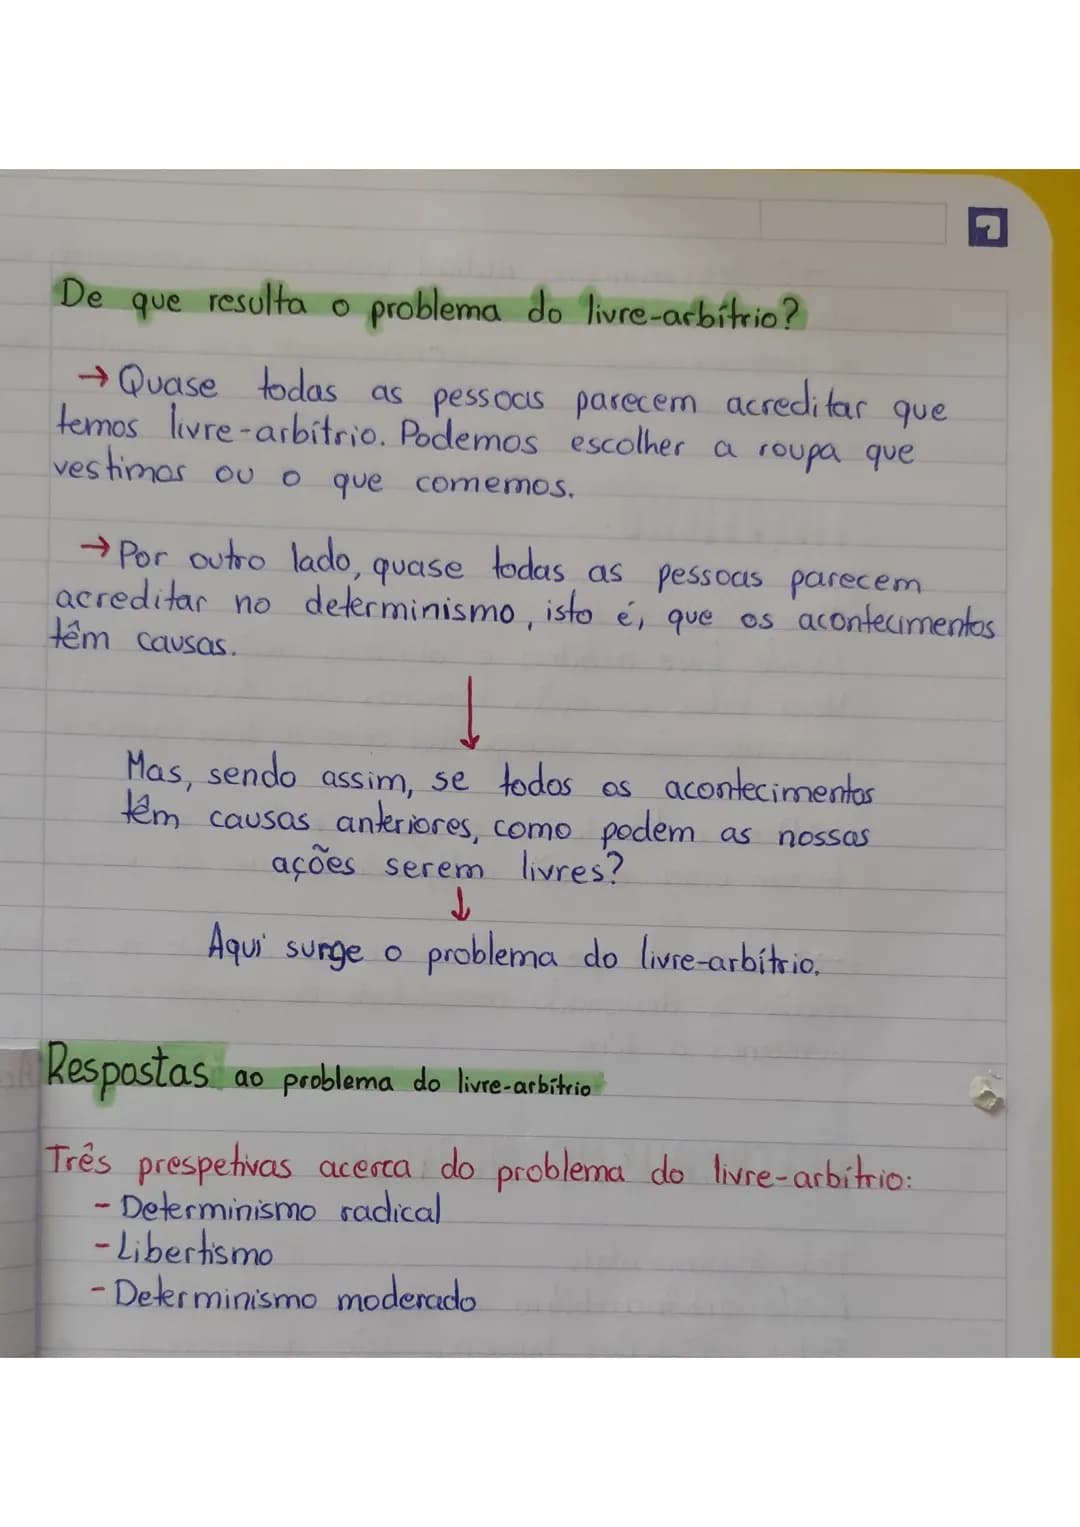 De que resulta o problema do livre-arbítrio?
→ Quase todas as pessoas parecem acreditar que
temos livre-arbítrio. Podemos escolher a roupa que
vestimos ou o que comemos.
→ Por outro lado, quase todas as pessoas parecem
acreditar no determinismo, isto é, que os acontecimentos
têm causas.
↓
Mas, sendo assim, se todos os acontecimentos
têm causas anteriores, como podem as nossas
ações serem livres?
↓
Aqui surge o problema do livre-arbítrio.
Respostas ao problema do livre-arbítrio
Três prespetivas acerca do problema do livre-arbítrio:
- Determinismo radical
- Libertismo
- Determinismo moderado